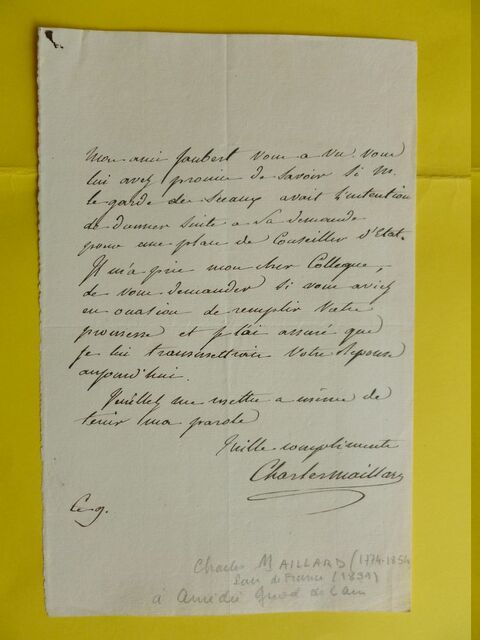 Mon ami Joubert vous a vu. vous
lui avez promis de savoir si M.
le garde des sceaux avait l'intention
de donner suite a sa demande
pour une place de Conseiller d'Etat.
Il m'a prié mon cher Collegue,
de vous demander si vous aviez
eu occasion de remplir votre
promesse et je l'ai assuré que
je lui transmettrais votre réponse
aujourd'hui.
Veuillez me mettre a même de
tenir ma parole
Mille compliments
Charles Maillard
Ce 9.
Charles MAILLARD (1774-1854
Pair de France (1839)
à Amédée de l'ain